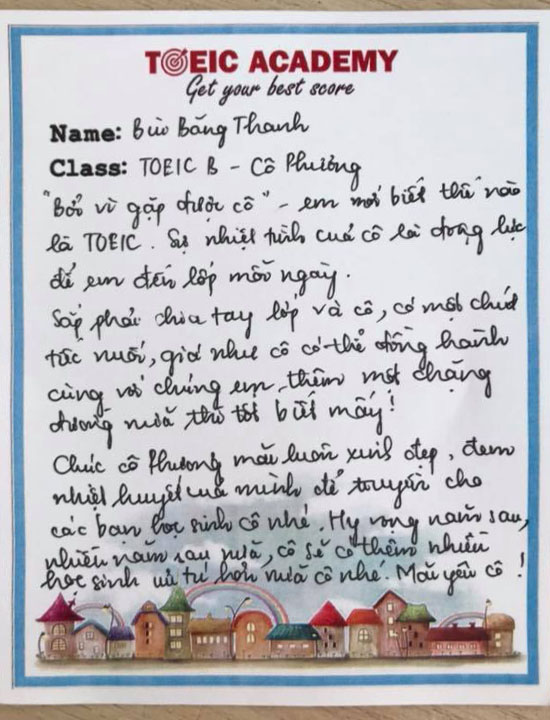 TOEIC ACADEMY
Get your best score
Name: Bùi Băng Thanh
Class: TOEIC B - Cô Phương
"Bởi vì gặp được cô" - em mới biết thế nào
là TOEIC. Sự nhiệt tình của cô là động lực
để em đến lớp mỗi ngày.
Sắp phải chia tay lớp và cô, có một chút
tiếc nuối, giá như cô có thể đồng hành
cùng với chúng em thêm một chặng
đường nữa thì tốt biết mấy!
Chúc cô Phương mãi luôn xinh đẹp, đem
nhiệt huyết của mình để truyền cho
các bạn học sinh cô nhé. Hy vọng năm sau,
nhiều năm sau nữa, cô sẽ có thêm nhiều
học sinh ưu tú hơn nữa cô nhé. Mãi yêu cô!